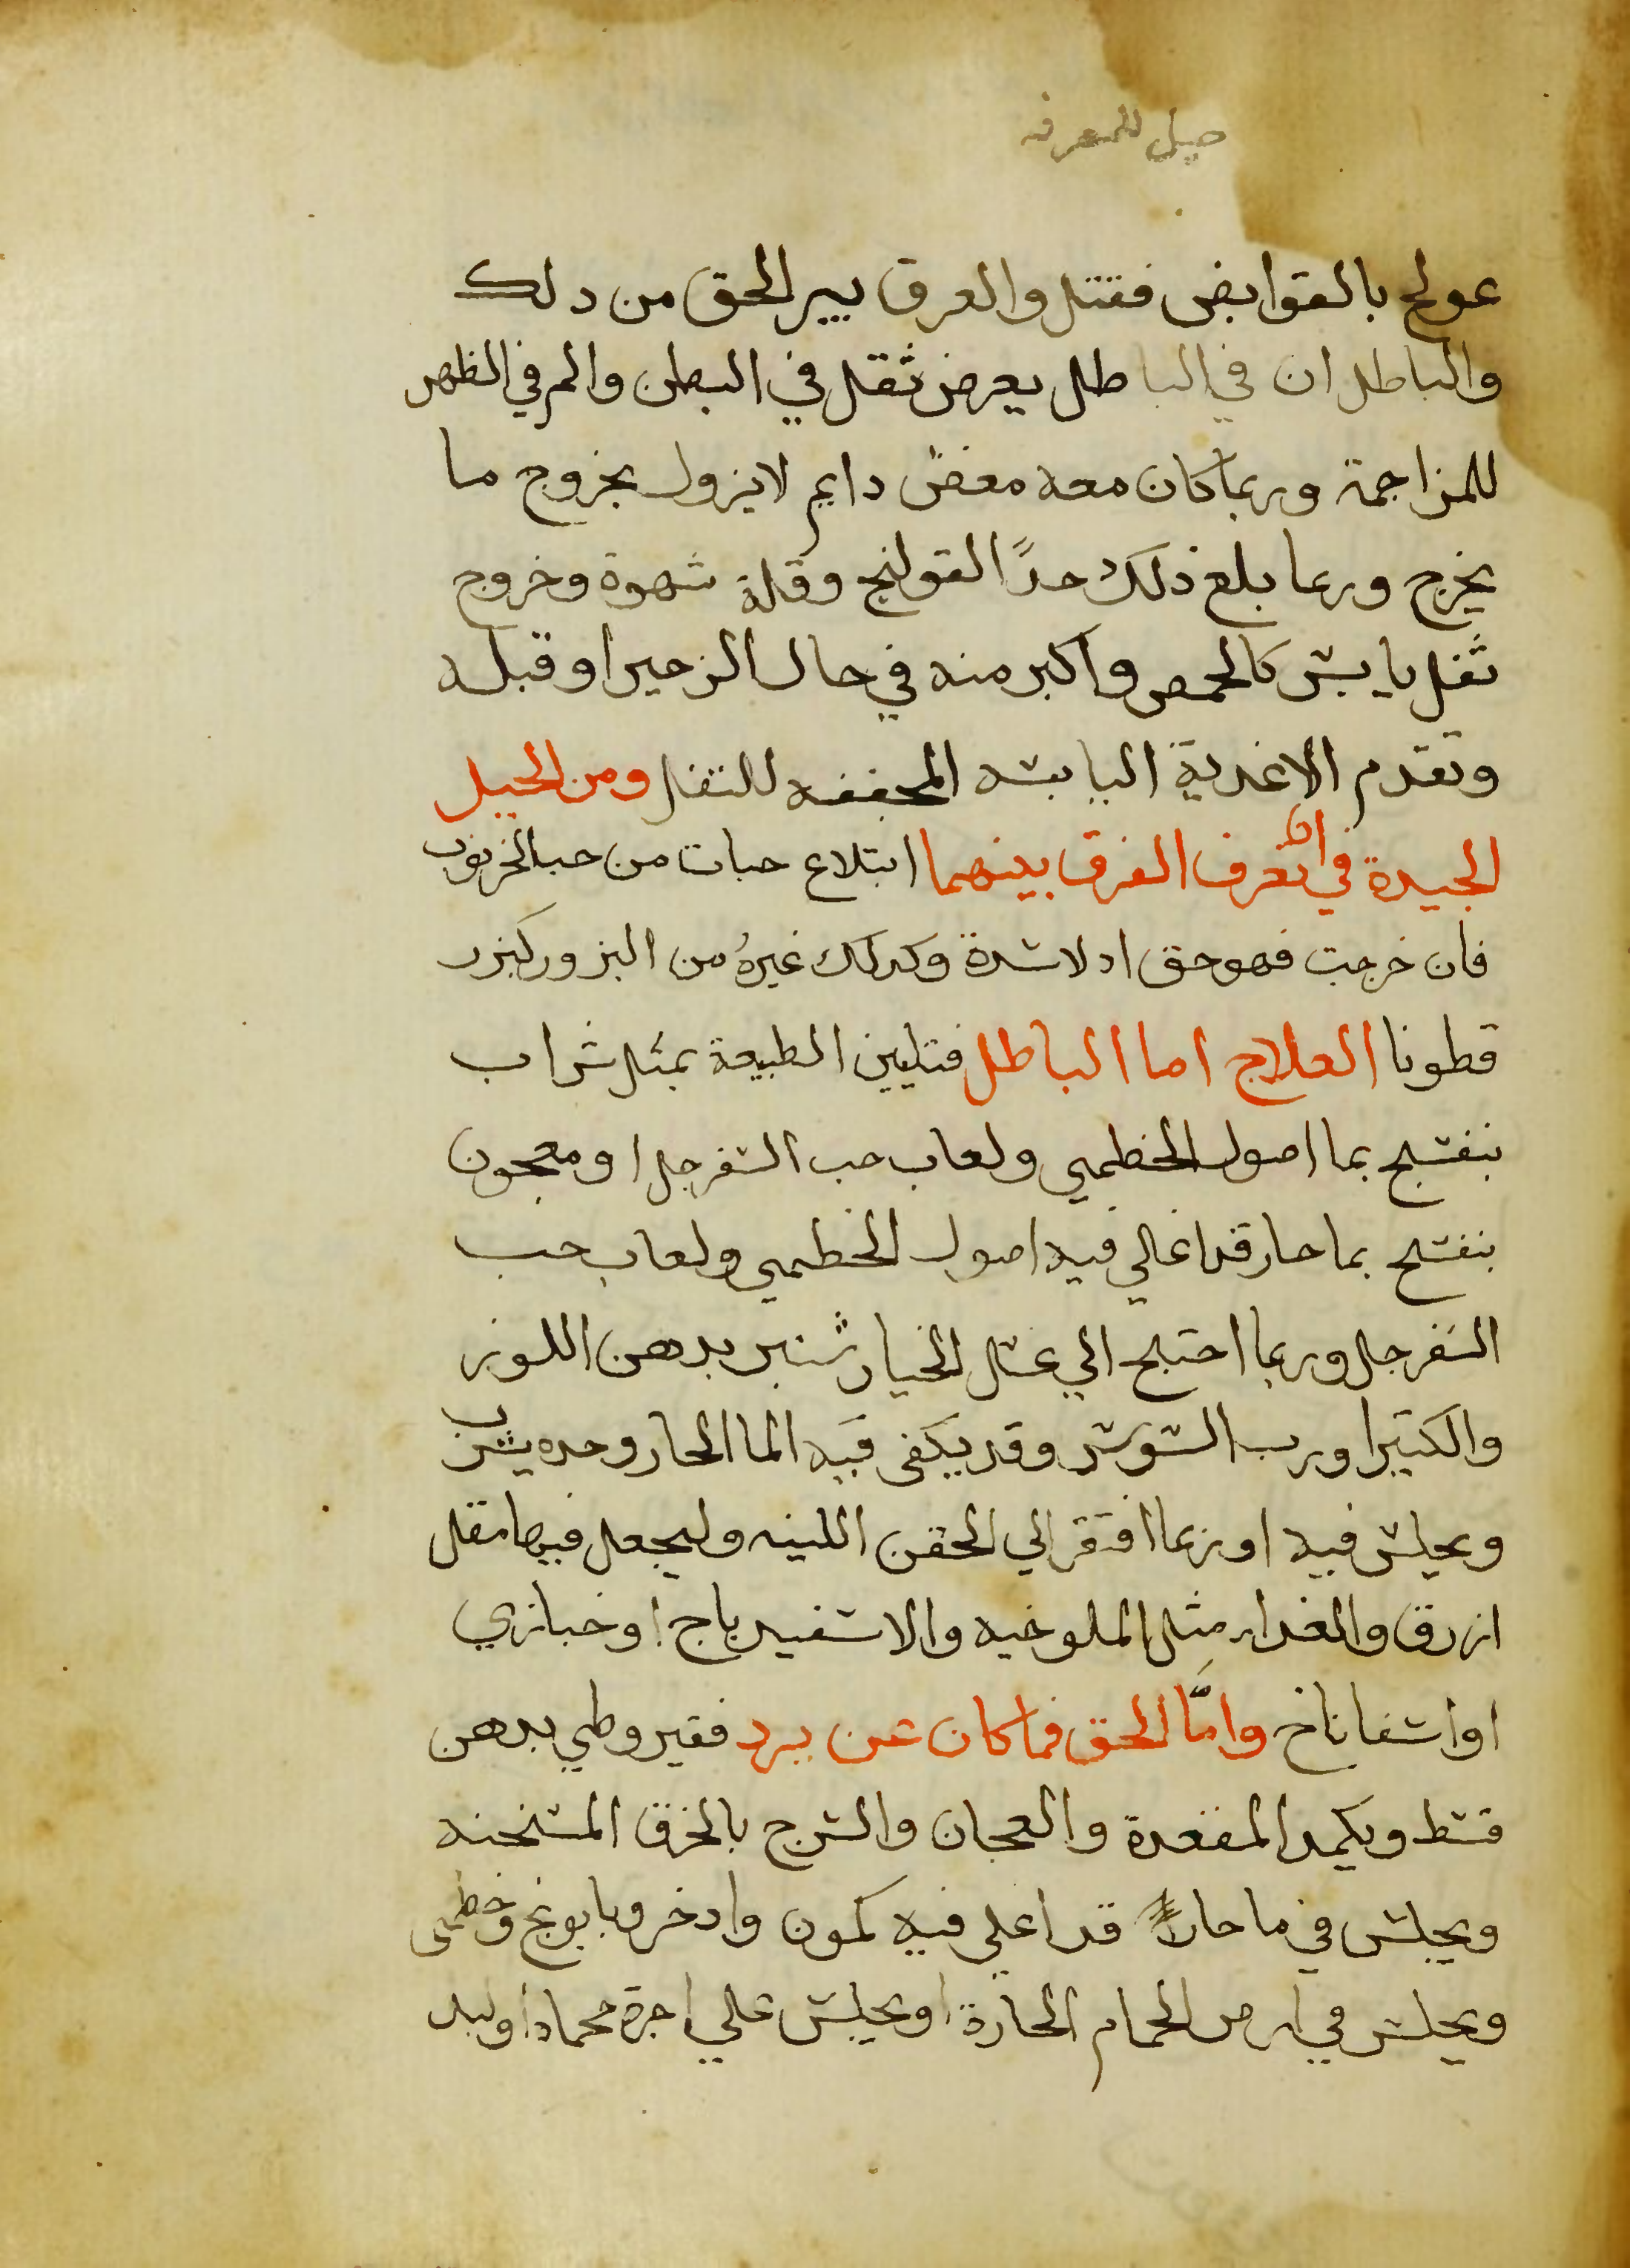 حيل للمعرفه
عولج بالقوابض فقتل والفرق بين الحق من دلك
والباطل ان في الباطل يعرض ثقل في البطن والم في الظهر
للمزاحمة وربما كان معه مغض دايم لا يزول بخروج ما
يخرج وربما بلغ ذلك حدًا القولنج وقلة شهوة وخروج
ثفل يابس كالحمص واكبر منه في حال الزحير او قبله
وتقدم الاغدية اليابسه المجففه للثفل ومن الحيل
الجيدة في ان تعرف الفرق بينهما ابتلاع حبات من حب الخرنوب
فان خرجت فهو حق اد لا سدة وكدلك غيرهُ من البزور كبزر
قطونا العلاج اما الباطل فتليين الطبيعة بمثل شراب
بنفسج بما اصول الخطمي ولعاب حب السفرجل او معجون
بنفسج بما حار قد اغالي فيه اصول الخطمي ولعاب حب
السفرجل وربما احتيج الي عسل الخيار شنبر بدهن اللوز
والكتيرا ورب السوس وقد يكفى فيه الما الحار وحده يشرب
ويجلس فيه او ربما افتقر الي الحقن اللينه وليجعل فيها مقل
ازرق والغداء مثل الملوخيه والاسفيدباج او خبازي
او اسفاناخ وامّا الحق فما كان عن برد فقيروطي بدهن
قسط ويكمد المقعدة والعجان والشرج بالخرق المسخنه
ويجلس في ما حار قد اغلي فيه كمون وادخر وبابونج وخطمى
ويجلس في ارض الحمام الحارة او يجلس علي اجرة محماة او لبد